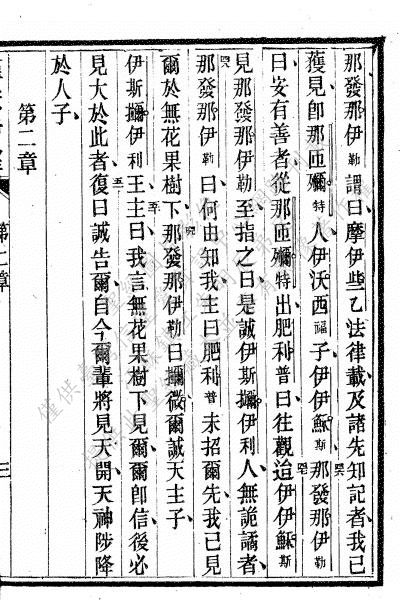 那發那伊勒謂曰摩伊些乙法律載及諸先知記者我已
獲見卽那匝特人伊沃西福子伊伊穌斯那發那伊勒
曰安有善者從那匝特出肥利普曰往觀迨伊伊穌斯
見那發那伊勒至指之曰是誠伊斯伊利人無詭譎者
那發那伊勒曰何由知我主曰肥利普未招爾先我已見
爾於無花果樹下那發那伊勒曰微爾誠天主子
伊斯伊利王主曰我言無花果樹下見爾爾卽信後必
見大於此者復曰誠告爾自今爾輩將見天開天神陟降
於人子
第二章
第二章
三